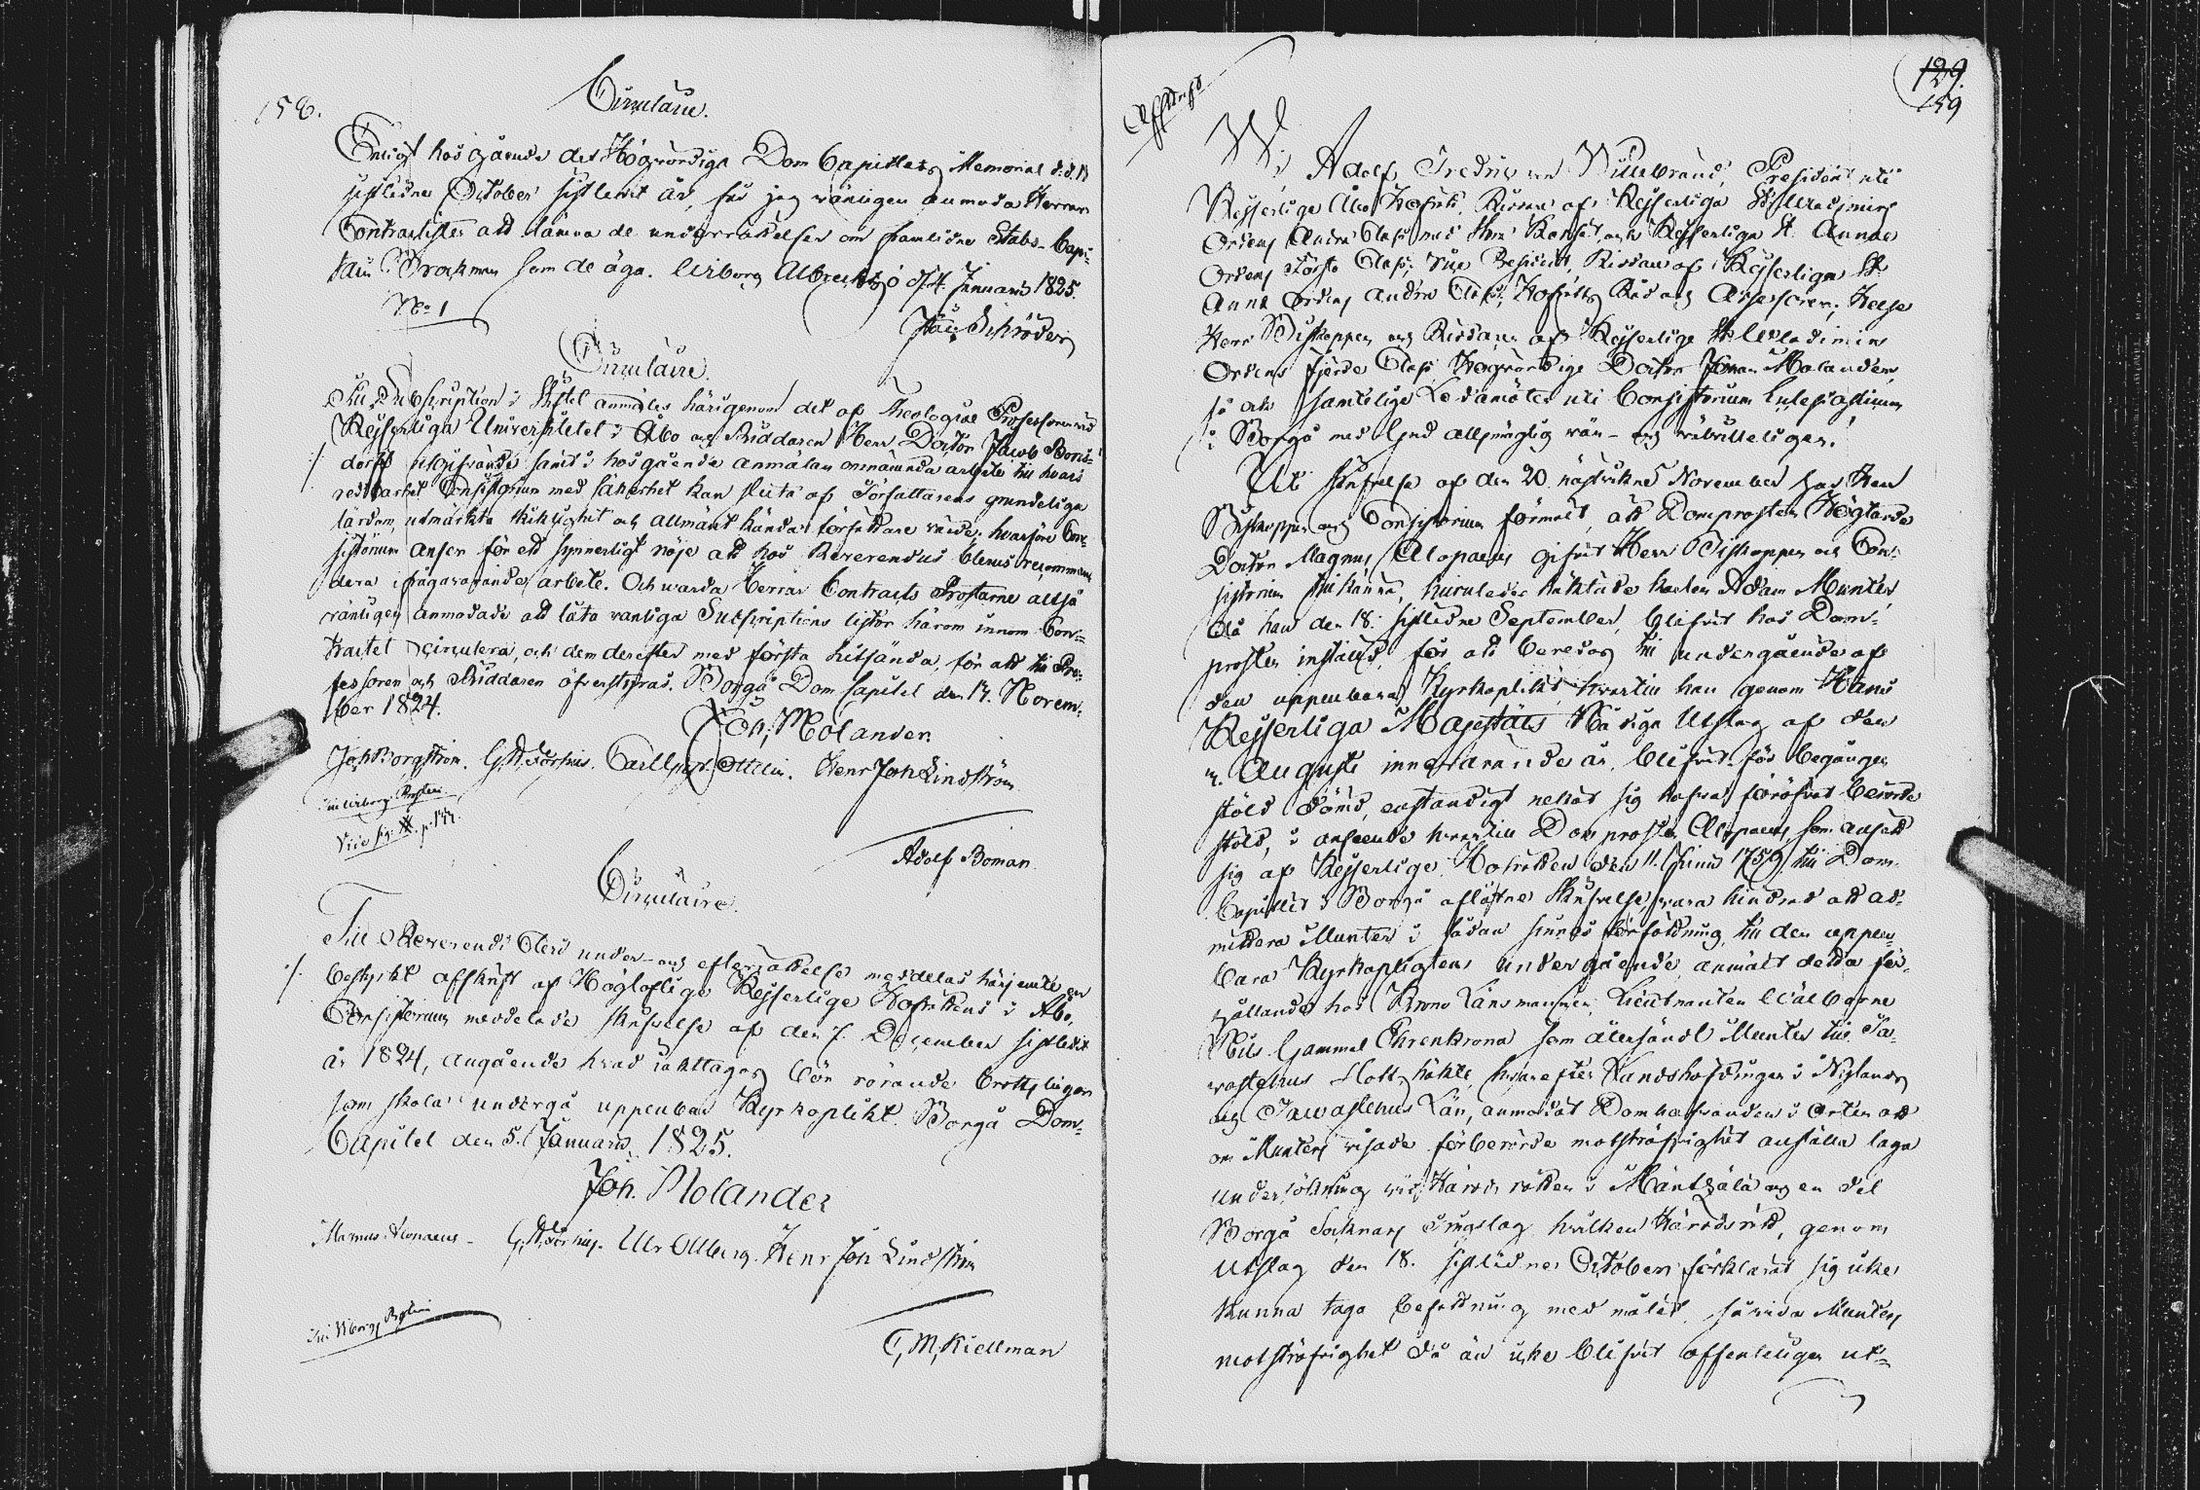 158.
Circulaire.
Enligt hos gående det Högvördiga Dom Capitlets Memorial d.d. 13
sistledne October sistlevit år, får jag vänligen anmoda Herrar
Contractister att lämna de underrättelser om framlidne Stabs-Capi-
tain Brakman som de äga. Wiborg Albrecktsö d. 4 Januarii 1825.
No 1
Schröder
Circulaire.
Till Subscription i Stiftet anmäles härigenom det af Theologiæ Professoren vid
Kejserliga Universitetet i Åbo och Riddaren Herr Doctor Jacob Bons-
dorff utgifvande samt i hosgående anmälan omnämnda arbete till hvars
redbarhet Consistorium med säkerhet kan sluta af Författarens grundeliga
lärdom, utmärkta skicklighet och allmänt kända författare värde; hvarföre Con-
sistorium anser för ett synnerligt nöje att hos Reverendus Clerus recommen-
dera ifrågavarande arbete. Och warda Herrar Contracts Prostarne altså
vänligen anmodade att låta vanliga Subscriptions listor härom innom Con-
tractet circulera, och dem derefter med första hitsända, för att till Pro-
fessoren och Riddaren öfverstyras. Borgå Dom Capitel den 17. Novem-
ber 1824.
Joh. Molander.
Joh Borgström. G. A. Forsius. Carl Gust. Ottelin. Henr Joh Lindström
Till Wiborgs Prosteri
Vide p. 144.
Adolf Boman
Circulaire.
Till Reverendi Cleri under- och efterrättelse meddelas härjemte en
bestyrkt afskrift af Högloflige Kejserlige Hofrättens i Åbo,
Consistorium meddelade skrifvelse af den 7. December sistledit
år 1824, angående hvad iakttagas bör rörande brottslingar
som skola undergå uppenbar Kyrkoplikt. Borgå Dom-
Capitel den 5. Januarii 1825.
Joh. Molander
Magnus Alopaeus. G. A. Forsius. Henr Joh Lindström
Till Wiborgs Prosteri
C. M. Kiellman
Afskrift
129.
159
Wi, Adolf Fredric von Willebrand, President uti
Kejserliga Åbo Hofrätt, Riddare af Kejserliga St Wladimirs
Ordens Andra Class med Stora Korset, och Kejserliga St. Annæ
Ordens Första Class; Vice President, Riddare af Kejserliga St.
Annæ Ordens andra Class; Hofrätts Råd och Assessorer; Helse
Herr Biskoppen och Riddaren af Kejserlige St. Wladimirs
Ordens fjerde Class Högvördige Doctor Johan Molander,
så ock samtelige Ledamöter uti Consistorium Ecclesiasticum
i Borgå med Gud allsmägtig vän- och välvilleligen!
Uti skrifvelse af den 20. nästvikne November har Herr
Biskoppen och Consistorium förmält, att Domprosten Höglärde
Doctor Magnus Alopaeus gifvit Herr Biskoppen och Con-
sistorium tillkänna, huruledes häktade karlen Adam Munter,
då han den 18. sistledne September, blifvit hos Dom-
prosten inställd, för att beredas till undergående af
den uppenbara Kyrkoplikt, hvartill han genom Hans
Kejserliga Majestäts Nådiga Utslag af den
7. Augusti innevarande år, blifvit för begången
stöld dömd, enständigt nekat sig hafva föröfvat berörde
stöld, i anseende hvartill Domprosten Alopaeus, som ansett
sig af Kejserlige Hofrättens den 11. Junii 1759 till Dom-
Capitlet i Borgå aflåtne skrifvelse, vara hindrad att ad-
mittera Munter i sådan sinnes författning, till den uppen-
bara Kyrkopligtens undergående, anmält detta för-
hållande hos Krono Länsmannen, Lieutnanten Wälborne
Nils Gammal Ehrenkrona som återsändt Munter till Ta-
vastehus Slotts häkte, hvarefter Landshöfdingen i Nylands
och Tawastehus Län, anmodat Domhafvanden i Orten att
om Munters visade förberörde motsträfvighet anställa laga
undersökning vid Härads rätten i Mäntzälä och en del
Borgå Socknars Tingslag, hvilken Häradsrätt, genom
Utslag den 18. sistledne October, förklarat sig icke
kunna taga befattning med målet, så vida Munters
motsträfvighet då än icke blifvit offenteligen ut-